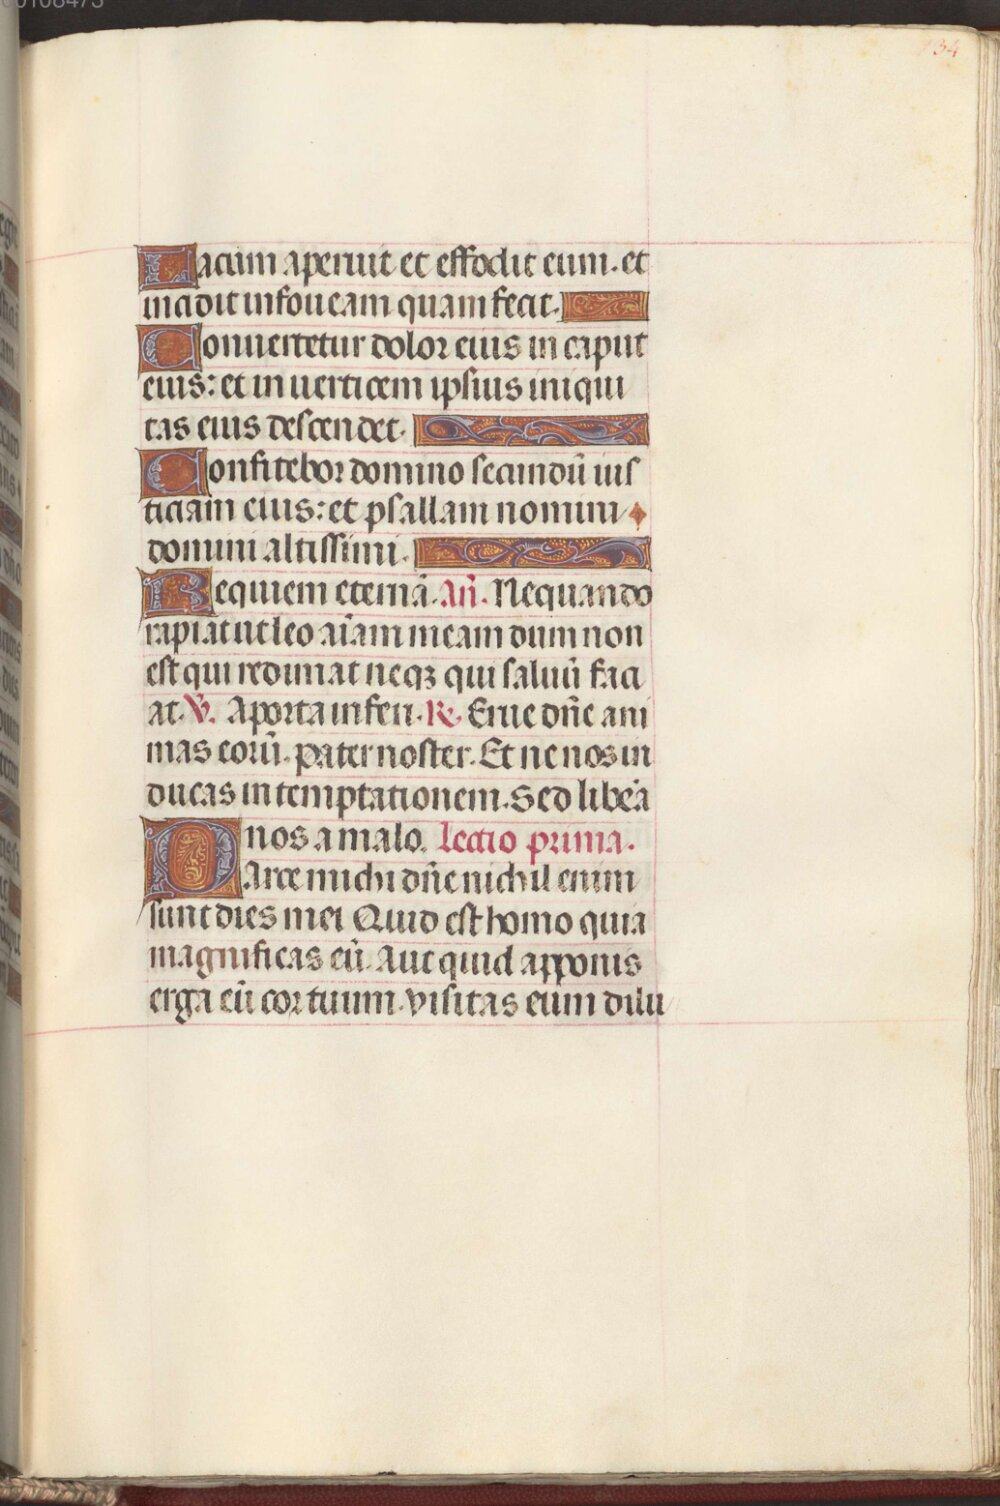 00108473
134
Lacum aperuit et effodit eum. et
incidit in foueam quam fecit.
Conuertetur dolor eius in caput
eius: et in uerticem ipsius iniqui
tas eius descendet.
Confitebor domino secundū ius
ticiam eius: et psallam nomini
domini altissimi.
Requiem eternā. Añ. Nequando
rapiat ut leo aīam meam dum non
est qui redimat neqꝫ qui saluū faci
at. ℣. A porta inferi. ℟. Erue dñe ani
mas eorū. pater noster. Et ne nos in
ducas in temptationem. Sed liberā
nos a malo. Lectio prima.
PArce michi dñe nichil enim
sunt dies mei Quid est homo quia
magnificas eū. Aut quid apponis
erga eū cor tuum. visitas eum dilu